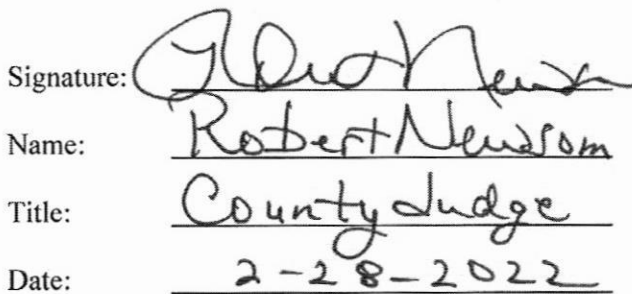 Signature: Robert Newsom
Name: Robert Newsom
Title: County Judge
Date: 2-28-2022